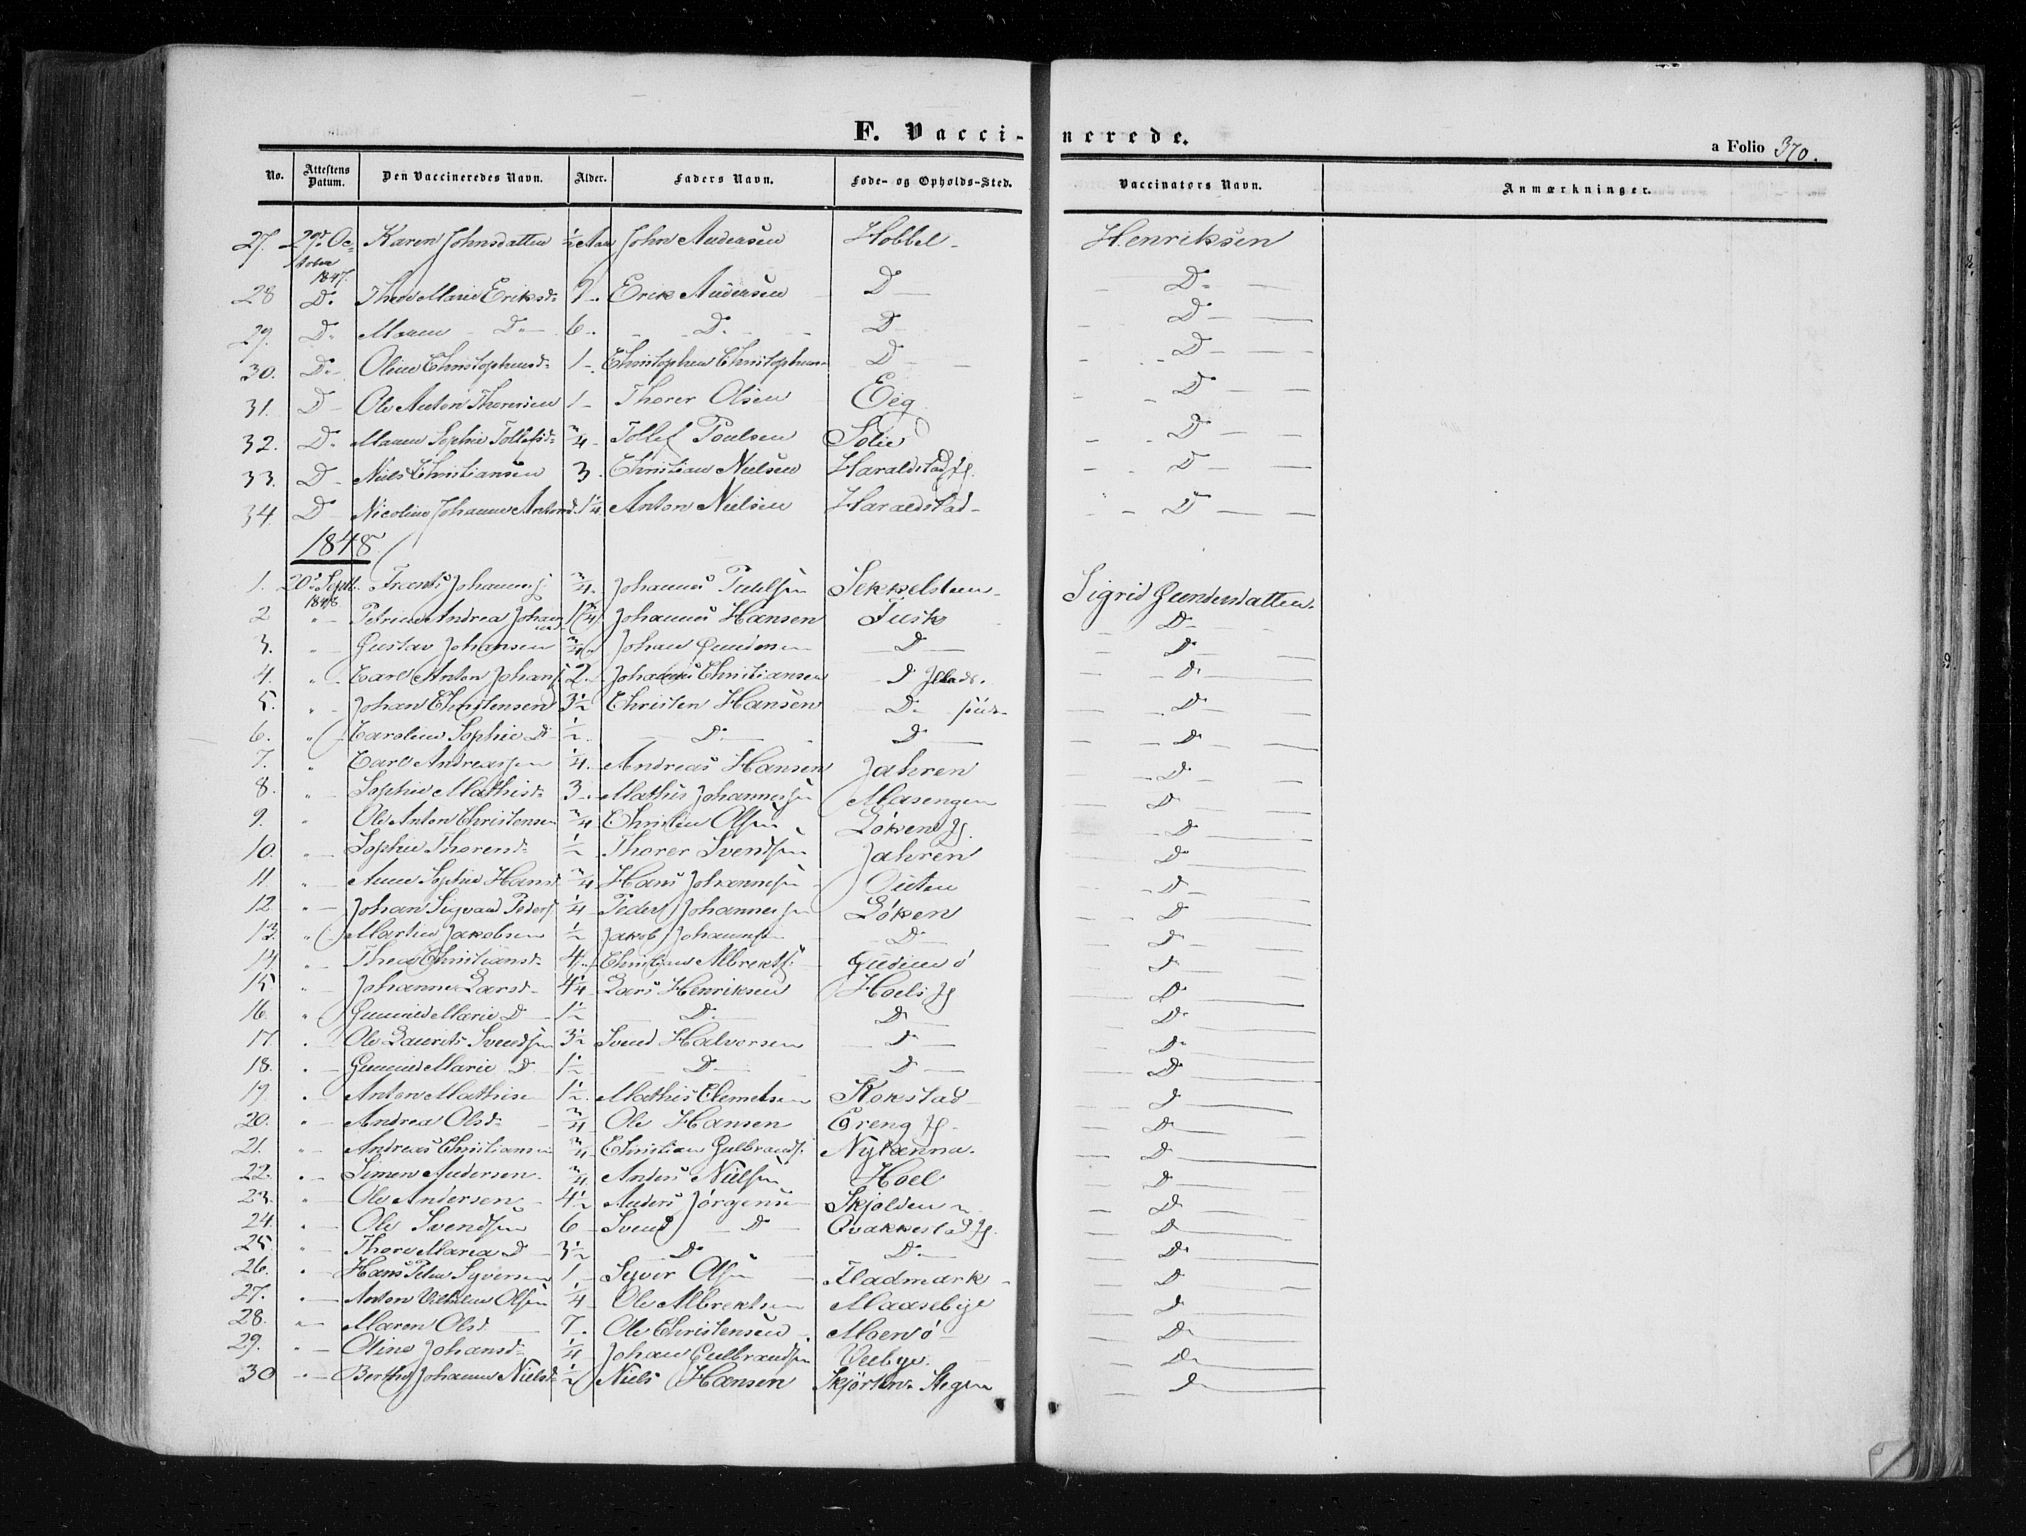 F. Vaccinerede.
a Folio 370.
No. Attestens Datum. Den Vaccineredes Navn. Alder. Faders Navn. Føde- og Opholds-Sted. Vaccinators Navn. Anmærkninger.
27. 29de October 1847. Karen Johnsdatter ½ Aar John Andersen Hobbel Henriksen
28 D. Marie Eriksd. Erik Andersen D D
29. D. Maren D 6 D. D D
30. D. Oline Christophersd. 1 Christopher Christophersen D D
31. D Ole Anton Thoresen 1 Thorer Olsen Eeg D
32. D. Maren Sophie Tollefsd. ¾ Tollef Poulsen Solie D
33. D Niels Christiansen 3. Christian Nielsen Haraldstad D
34 D Nicoline Johanne Antonsd. 1¼ Anton Nielsen Haraldstad D
1848.
1. 20de Septbr. 1848 Frants Johanness. ¾ Johannes Sekkelsteen Sigrid Gundersdatter
2 " Andrea Johannesd. 1¾ Johannes Hansen Tusk D
3. " Gustav Johansen ¾ Johan Gundersen D D
4. " Carl Anton Johans. 2 Johannes Christiansen D D
5. " Johan Christensen 3½ Christen Hansen D D
6. " Caroline Sophie D ½ D D D
7. " Carl Andreassen ¼ Andreas Hansen Jahren D
8. " Sophie Mathisd. 3 Mathis Johannessen Masengen D
9. " Ole Anton Christensen ¾ Christen Olsen Løken D
10. " Sophie Thoresd. ½ Thorer Svendsen Jahren D
11 " Anne Sophie Hansd. ¾ Hans Johannesen D
12. " Johan Sigvard Peders. ¼ Peder Johannessen Løken D
13. " Martin Jakobsen ½ Jakob Johannesen D D
14 " Thea Christiansd. 4 Christian Albrekts. D
15 " Johanne Larsd. 4¼ Lars Henriksen Hoels D
16. " Marie D 1½ D D D
17 " Ole Laurits Svendsen 3½ Svend Halvorsen D D
18. " Marie D. 1½ D D D
19. " Anton Mathisen 1½ Mathis Clemetsen Kokstad D
20. " Andrea Olsd. ¾ Ole Hansen D
21. " Andreas Christiansen ¾ Christian Gulbrands. Nykænna. D
22. " Simen Andersen. ¾ Anders Nielsen Hoel D
23. " Ole Andersen 4½ Anders Jørgensen Skjolden D
24. " Ole Svendsen 6 Svend D D
25. " Thore Maria D 3½ D D D
26. " Hans Peter Syversen 1 Syver Olsen Fladmark D
27. " Anton Olsen ¼ Ole Albrektsen Maasebye D
28. " " Maren Olsd. 7. Ole Christensen Moensø D
29. " Oline Johansd. ¼ Johan Gulbrandsen Veebye D
30 " Berthe Johanne Nielsd. ½ Niels Hansen D